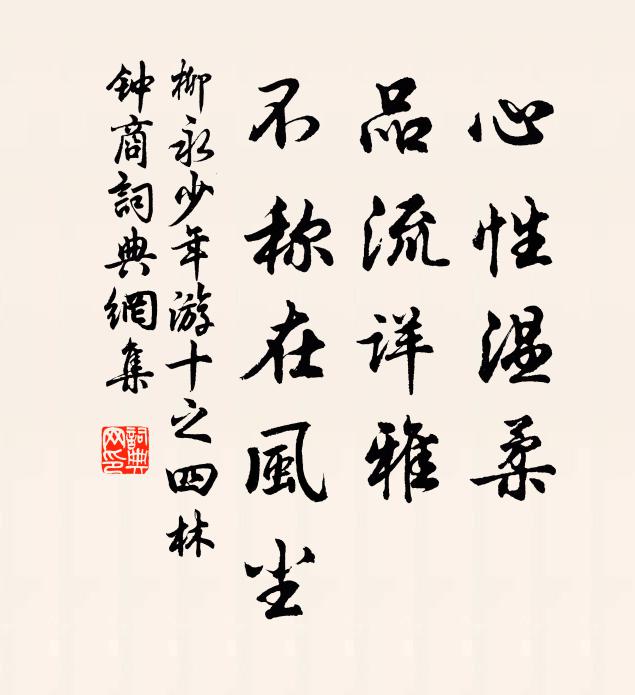 心性温柔
品流详雅
不称在風尘
柳永少年游十之四林
钟商詞典網集
詞典
网印